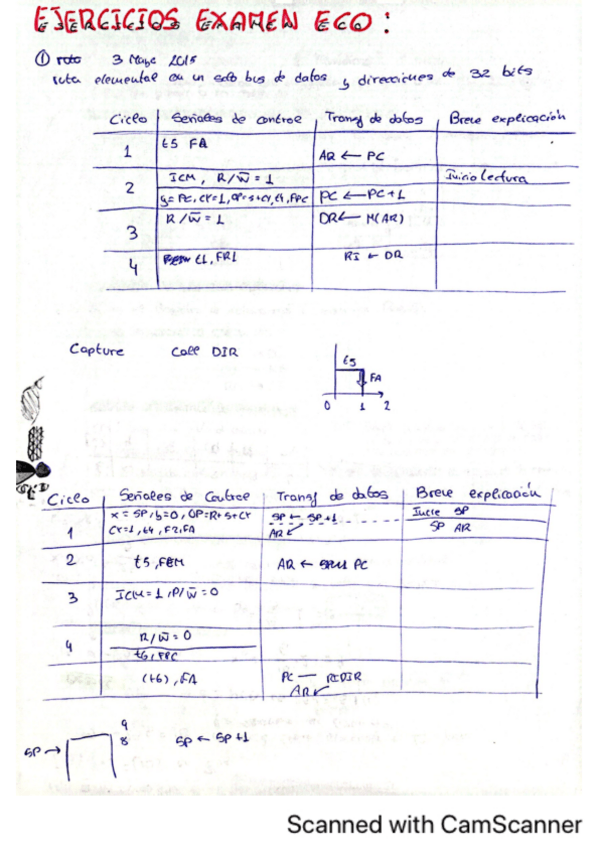 EJERCICIOS EXAMEN ECO:
① 3 Mayo 2015
ruta elemental con un solo bus de datos y direcciones de 32 bits
Ciclo Señales de control Transf de datos Breve explicación
1 t5 FA AR ← PC
2 ICM, R/W̄ = 1 Inicio lectura
PC ← PC + 1
3 R/W̄ = 1 DR ← M(AR)
4 t1, FRI RI ← DR
Capture Call DIR
t5
FA
0 1 2
Ciclo Señales de Control Transf de datos Breve explicación
X = SP, b=0, OP=R+S+Cr SP ← SP+1 SP
1 Cr=1, t4, F2, FA AR SP AR
2 t5, FEM AR ← PC
3 ICM=1, R/W̄ = 0
4 R/W̄ = 0
t6, FPC
(t6), FA PC — DIR
AR
9
8
SP → SP ← SP +1
Scanned with CamScanner